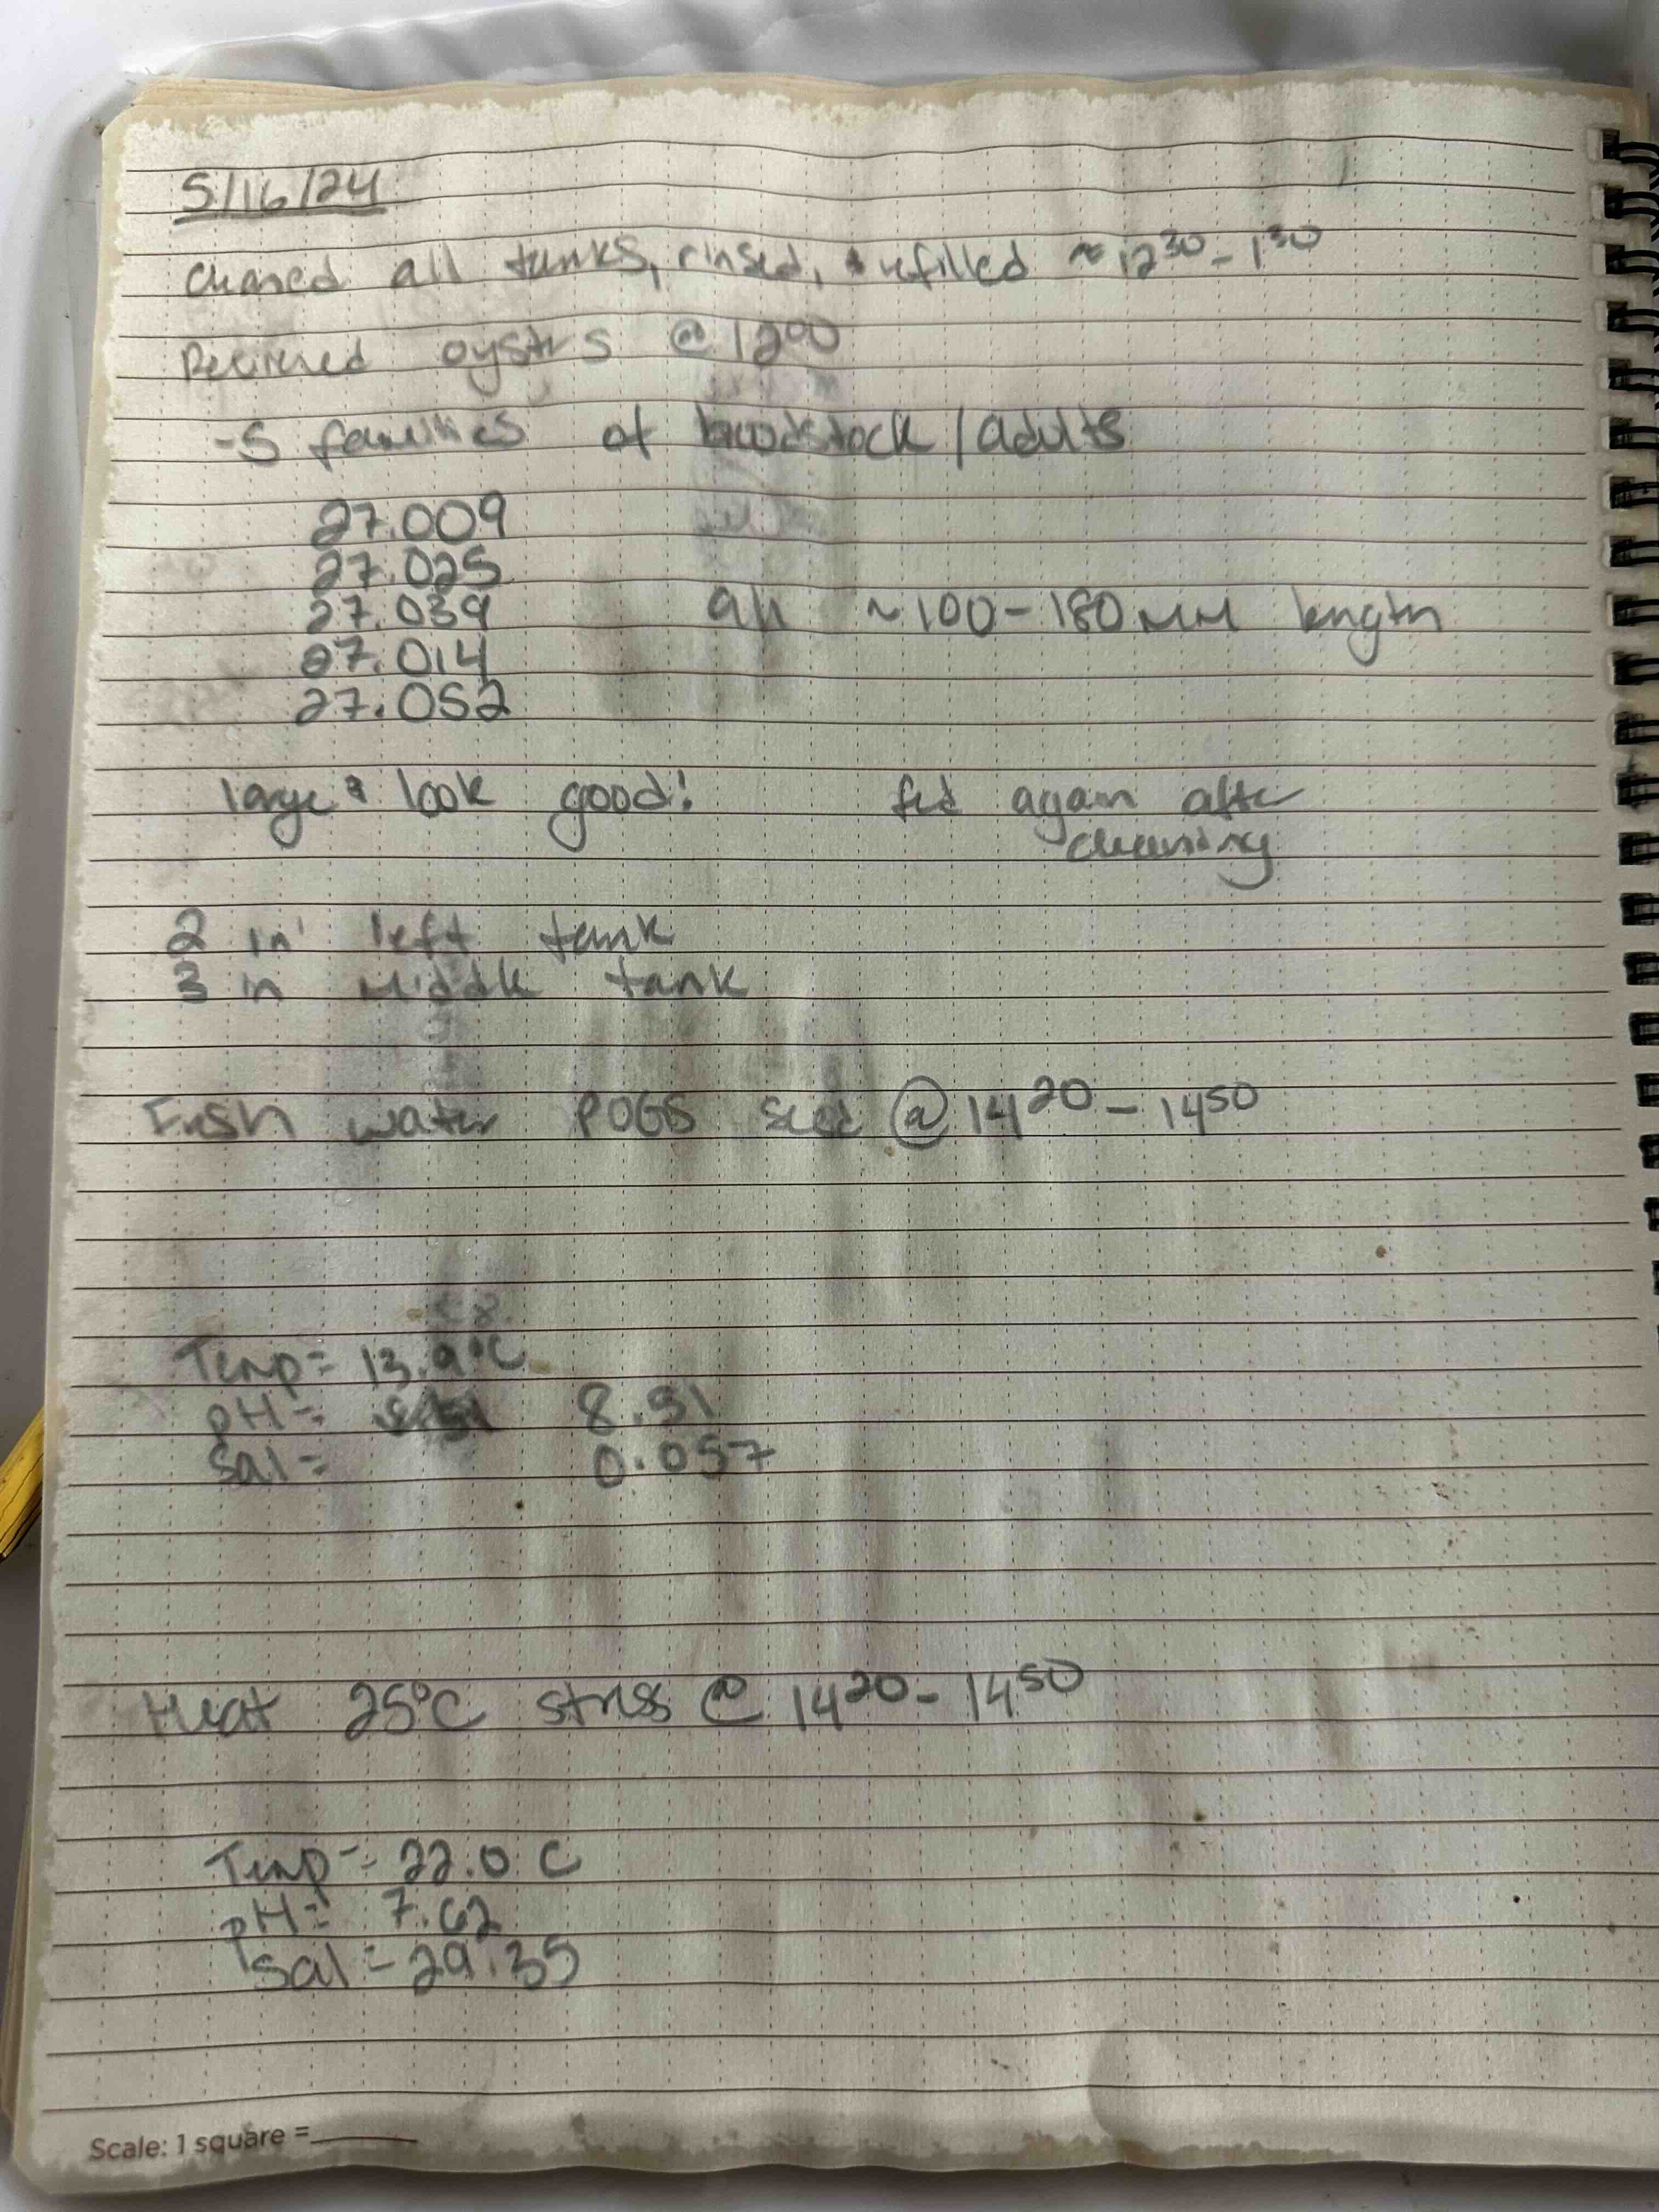 5/16/24
Cleaned all tanks, rinsed, & refilled ~ 12³⁰ - 1³⁰
Received oysters @ 12⁰⁰
- 5 families of broodstock / adults
27.009
27.025
27.039 all ~100-180 mm length
27.014
27.052
large & look good! fed again after
cleaning
2 in left tank
3 in middle tank
Fresh water POGS seed @ 14²⁰ - 14⁵⁰
Temp = 13.9°C
pH = 8.51
Sal = 0.057
Heat 25°C stress @ 14²⁰ - 14⁵⁰
Temp = 22.0 C
pH = 7.62
Sal = 29.35
Scale: 1 square =